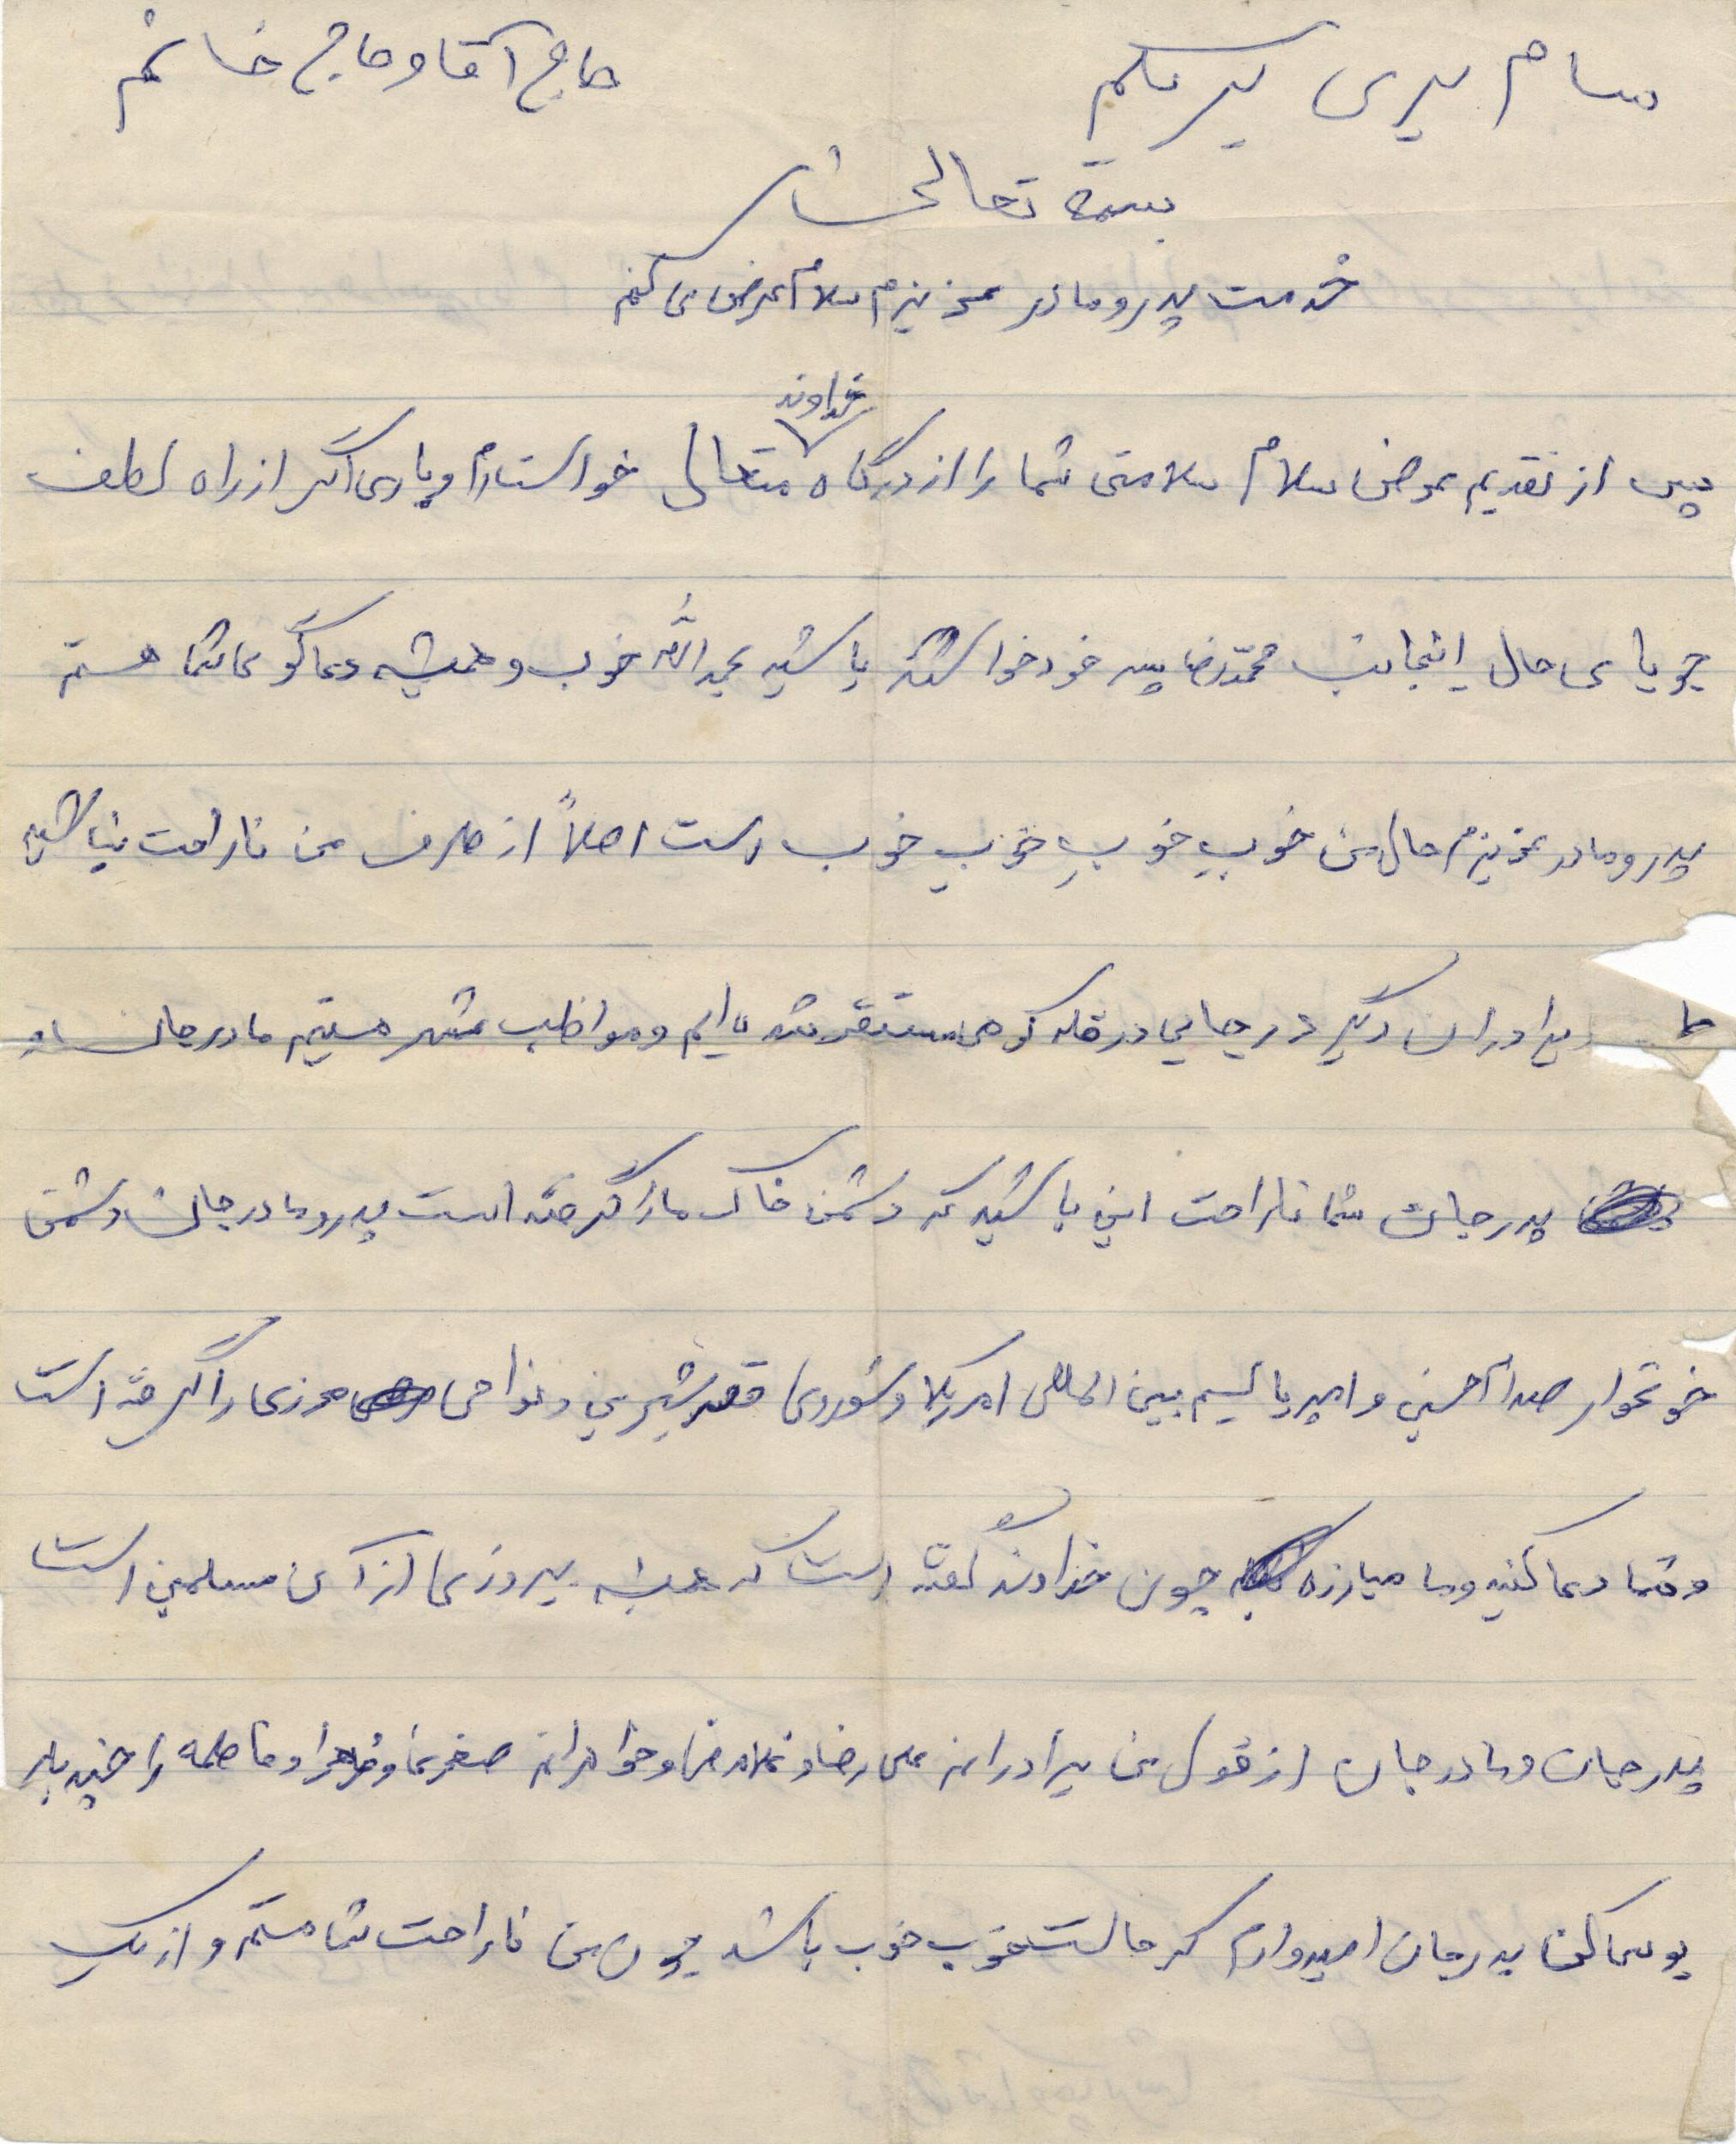 سام لیری لیر علیکم حاج آقا و حاج خانم
بسمه تعالی
خدمت پدر و مادر عزیزم سلام عرض می کنم
خداوند
پس از تقدیم عرض سلام سلامتی شما را از درگاه متعال خواستارم و باری اگر از راه لطف
جویای حال اینجانب محمدرضا پسر خود خواسته باشید بحمدالله خوب و همیشه دعاگوی شما هستم
پدر و مادر عزیزم حال من خوبِ خوبِ خوبِ خوب است اصلاً از طرف من ناراحت نباشید
ما برادران دیگر در جایی در قله کوهی مستقر شده ایم و مواظب شهر هستیم مادر جان
پدر جان شما ناراحت این باشید که دشمن خاک ما را گرفته است پدر و مادر جان دشمن
خونخوار صدام حسین و امپریالیسم بین المللی امریکا و شوروی قصر شیرین و نواحی مرزی را گرفته است
و شما دعا کنید و ما مبارزه چون خداوند گفته است که همیشه پیروزی از آن مسلمین است
پدر جان و مادر جان از قول من برادرانم علی رضا و غلامرضا و خواهرانم صغری و زهرا و فاطمه را خیلی
بوسی کن پدر جان امیدوارم که حالت خوب خوب باشد چون من ناراحت شما هستم و از یک